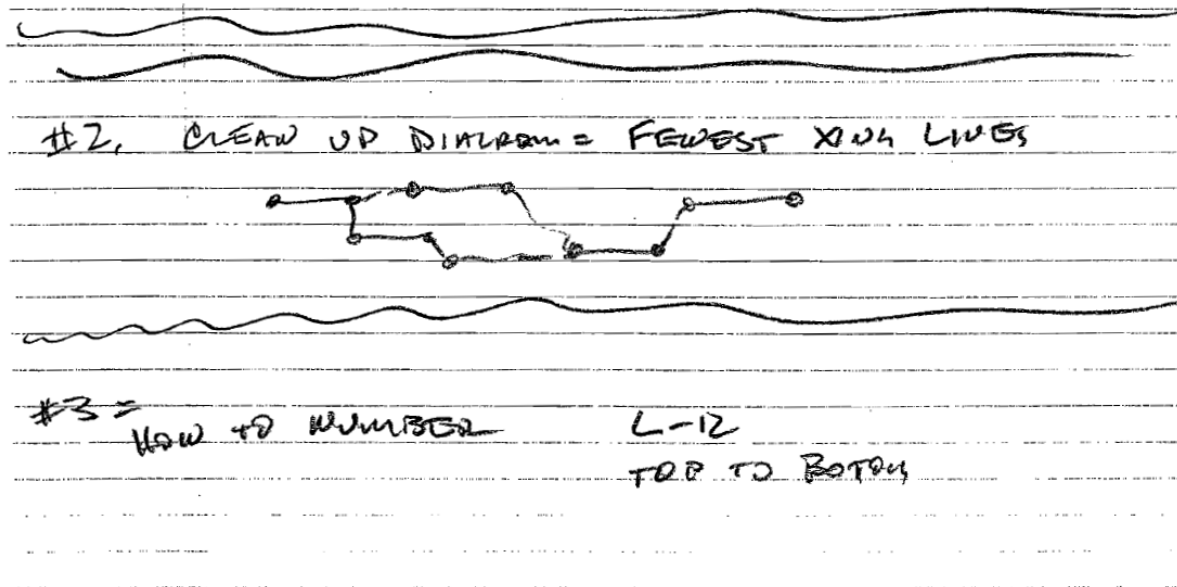 #2. CLEAN UP DIAGRAM = FEWEST XING LINES
#3 =
HOW TO NUMBER L-R
TOP TO BOTOM